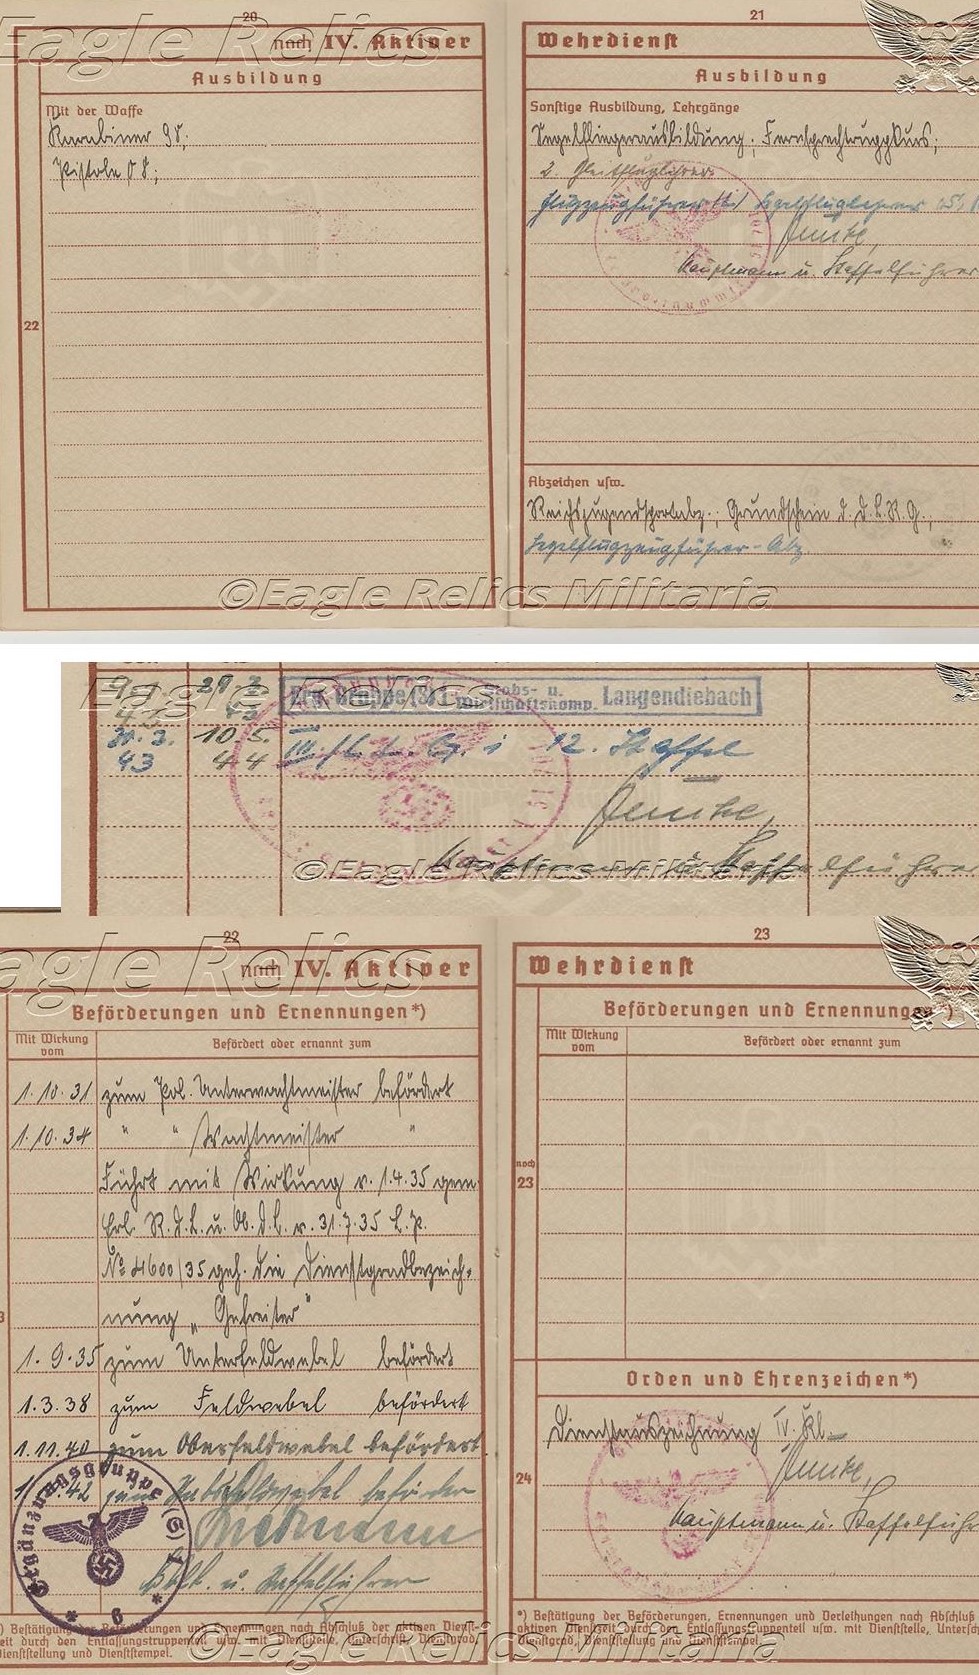 Eagle Relics
20
noch IV. Aktiver
Ausbildung
Mit der Waffe
Karabiner 98;
Pistole 08;
22
21
Wehrdienst
Ausbildung
Sonstige Ausbildung, Lehrgänge
Segelfliegerausbildung; Fernsprechtruppkurs;
2. Gleitfluglehrer
Flugzeugführer Segelfluglehrer
Hauptmann u. Staffelführer
Abzeichen usw.
Reichsjugendsportabz.; Grundschein d. D.L.R.G.;
Segelflugzeugführer-Abz
©Eagle Relics Militaria
Eagle Relics
29.2.
Erg. Gruppe (S) 1 Stabs- u. Wirtschaftskomp. Langendiebach
20.3. 10.5. III./L.L.G. 1 12. Staffel
43 44
Hauptmann u. Staffelführer
©Eagle Relics Militaria
Eagle Relics
22
noch IV. Aktiver
Beförderungen und Ernennungen*)
Mit Wirkung vom
Befördert oder ernannt zum
1.10.31 zum Pol. Unterwachtmeister befördert
1.10.34 " " Wachtmeister "
Führt mit Wirkung v. 1.4.35 gem.
Erl. R.d.L. u. Ob.d.L. v. 31.7.35 L.P.
No 4600/35 geh. die Dienstgradbezeich-
nung „Gefreiter"
1.9.35 zum Unterfeldwebel befördert
1.3.38 zum Feldwebel befördert
1.11.40 zum Oberfeldwebel befördert.
42 zum Stabsfeldwebel
u. Staffelführer
Ergänzungsgruppe (S) 1
* 6 *
23
Wehrdienst
Beförderungen und Ernennungen*)
Mit Wirkung vom
Befördert oder ernannt zum
noch
23
Orden und Ehrenzeichen*)
Dienstauszeichnung IV. Kl.
24
Hauptmann u. Staffelfüh
*) Bestätigung der Beförderungen, Ernennungen und Verleihungen nach Abschluß
aktiven Dienstzeit durch den Entlassungstruppenteil usw. mit Dienststelle, Untersch
Dienstgrad, Dienststellung und Dienststempel.
) Bestätigung der Beförderungen und Ernennungen nach Abschluß der aktiven Dienst-
eit durch den Entlassungstruppenteil usw. mit Dienststelle, Unterschrift, Dienstgrad,
ienststellung und Dienststempel.
©Eagle Relics Militaria